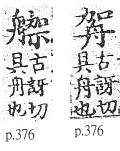 古訝切
具舟也
p.376
古訝切
具舟也
p.376